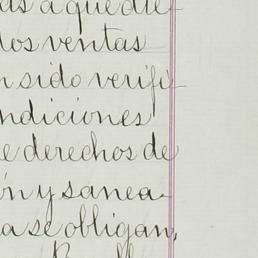 as a que die-
dos ventas
n sido verifi-
ndiciones
e derechos de
ón y sanea-
a se obligan,